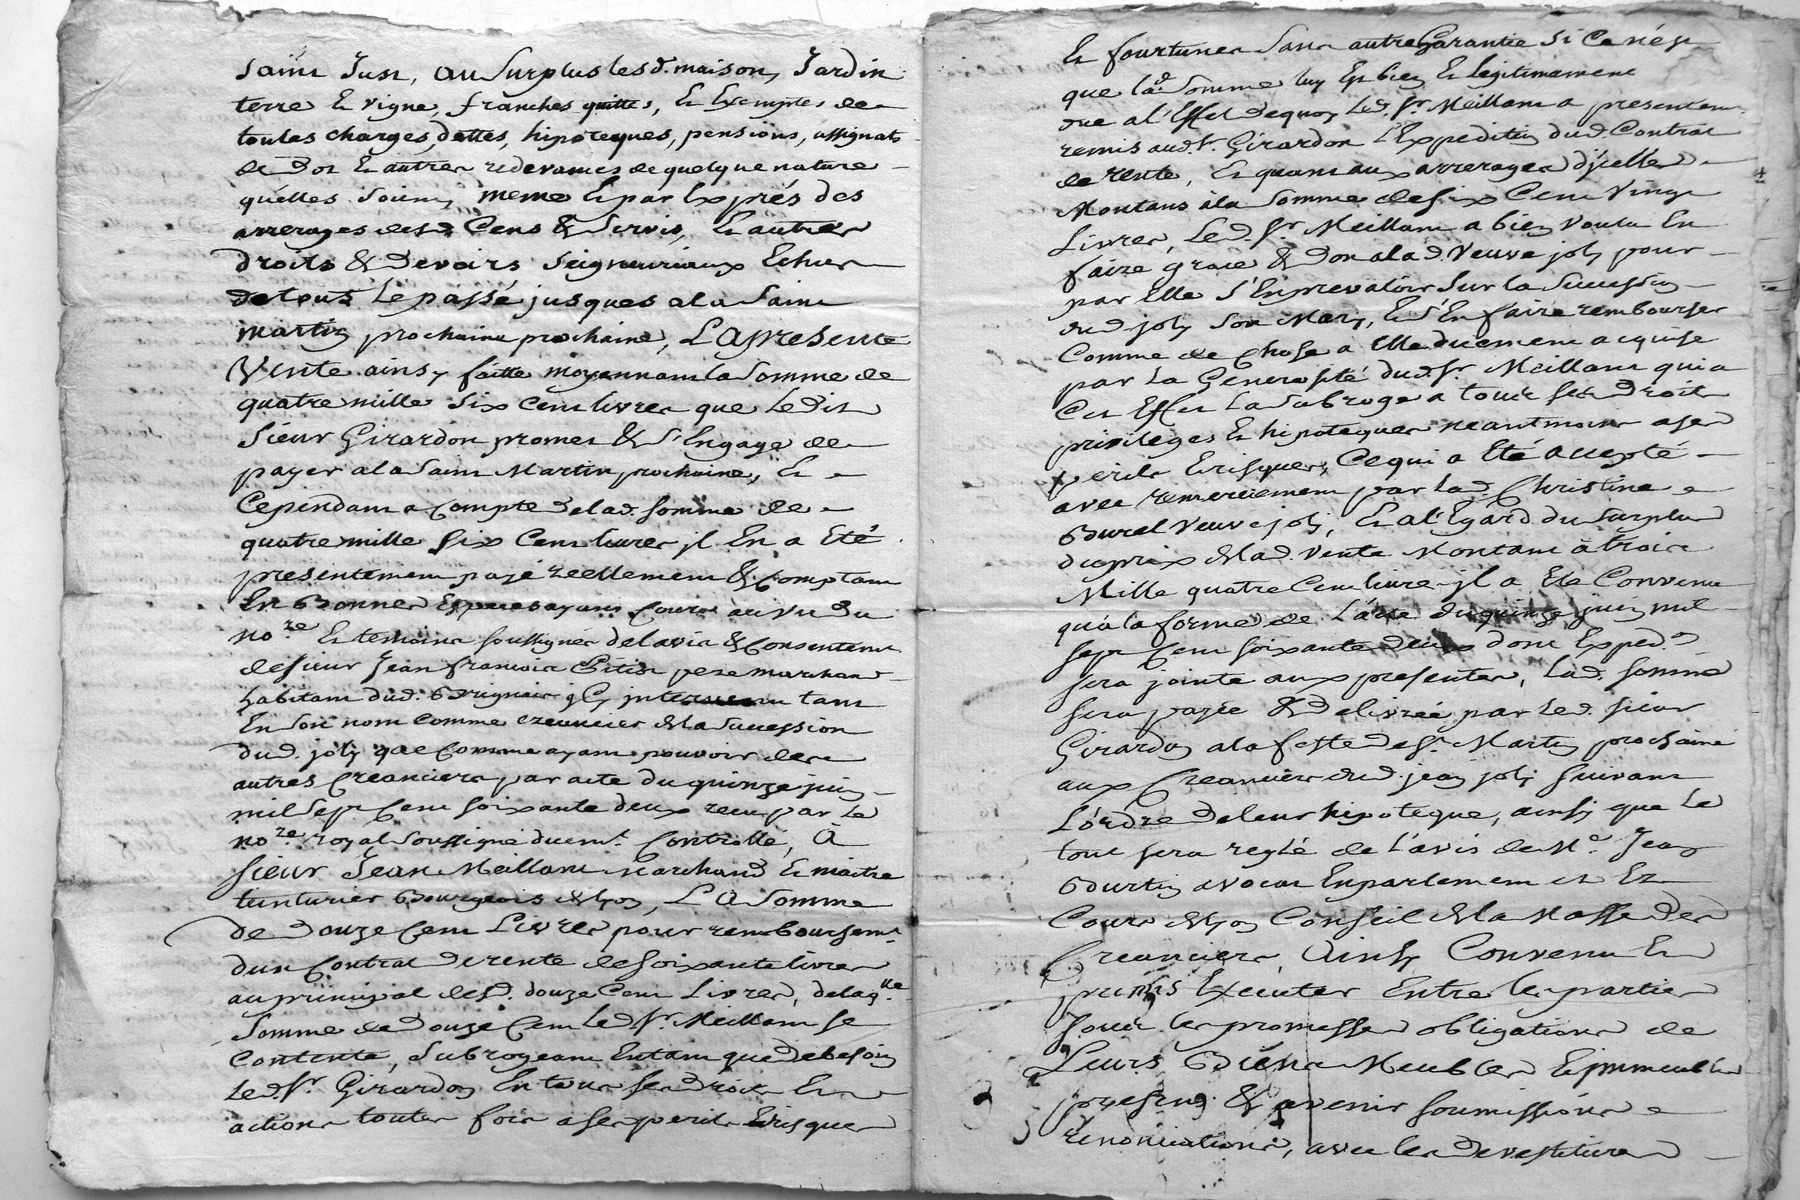 saint Just, au surplus lesd. maison, Jardin
terre et vigne, franches quittes, et Exemptes de
toutes charges, dettes, hipoteques, pensions, assignats
de dot et autres redevances de quelque nature
quelles soient, meme et par Exprés des
arrerages desd. Cens & Servis, et autres
droits & devoirs seigneuriaux Echus
de tout Le passé jusques a la Saint
martin prochaine prochaine, La presente
Vente ainsy faitte moyennant la somme de
quatre mille six cent livres que Ledit
Sieur Girardon promet & s'Engage de
payer a la Saint Martin prochaine, Et
Cependant a compte de lad. somme de
quatre mille six Cent livres jl En a Eté
presentement payé réellement & comptant
En Bonnes Especes ayant Cours au vu du
no.re Et temoins soussignés de lavis & Consentemt
de sieur Jean francois Petit pere marchand
habitant dud. Brignais jcy intervenu tant
En son nom comme creancier de la succession
dud. joly que Comme ayant pouvoir des
autres Creanciers par acte du quinze juin
mil Sept Cent soixante deux recu par Le
no.re royal soussigné duemt. Controllé, A
sieur Jean Meillant Marchand Et maitre
teinturier Bourgeois de Lyon, La Somme
de douze Cent Livres pour remboursemt.
dun Contrat de rente de soixante livres
au principal desd. douze Cent Livres, de laq.lle
Somme de douze Cent Led. Sr. Meillant se
Contente, Subrogeant En tant que de besoin
Led. Sr. Girardon En tous ses droits Et
actions toutes fois a ses perils Et risques
Et fortunes sans autre Garantie si Ce n'est
que lad. Somme luy Est bien Et légitimement
due a l'Effet de quoy Led. Sr. Meillant a presentemt.
remis aud. Sr. Girardon l'Expedition dud. Contrat
de rente, Et quant aux arrerages d'jcelle
Montans à la somme de six Cent Vingt
Livres, Led. Sr. Meillant a bien voulu En
faire grace & don a lad. Veuve joly pour
par Elle s'En prevaloir Sur la Succession
dud. joly son Mary, Et s'En faire rembourser
Comme de Chose a Elle duement acquise
par La Generosité dud. Sr. Meillant qui a
Cet Effet La Subroge a tous ses droits
privileges Et hipoteques neantmoins a ses
perils Et risques, Ce qui a Eté accepté
avec remerciement par Lad. Christine
Burel Veuve joly, Et a l'Egard du Surplus
du prix de lad. vente Montant à trois
Mille quatre Cent livres jl a Eté Convenu
qu'a la forme de L'acte du quinze juin mil
sept Cent soixante deux dont Exped.n
sera jointe aux presentes, Lad. somme
sera payée & delivrée par Led. sieur
Girardon a la feste de St. Martin prochaine
aux Creanciers dud. jean joly suivant
L'ordre de leur hipoteque, ainsy que Le
tout sera reglé de l'avis de Me. Jean
Burtin avocat En parlement et Ez
Cours de Lyon Conseil de la Masse des
Creanciers, Ainsy Convenu Et
promis Executer Entre les parties
sous les promesses obligations de
Leurs Biens Meubles Et jmmeubles
presens & avenir soumissions
renonciations, avec les devestitures